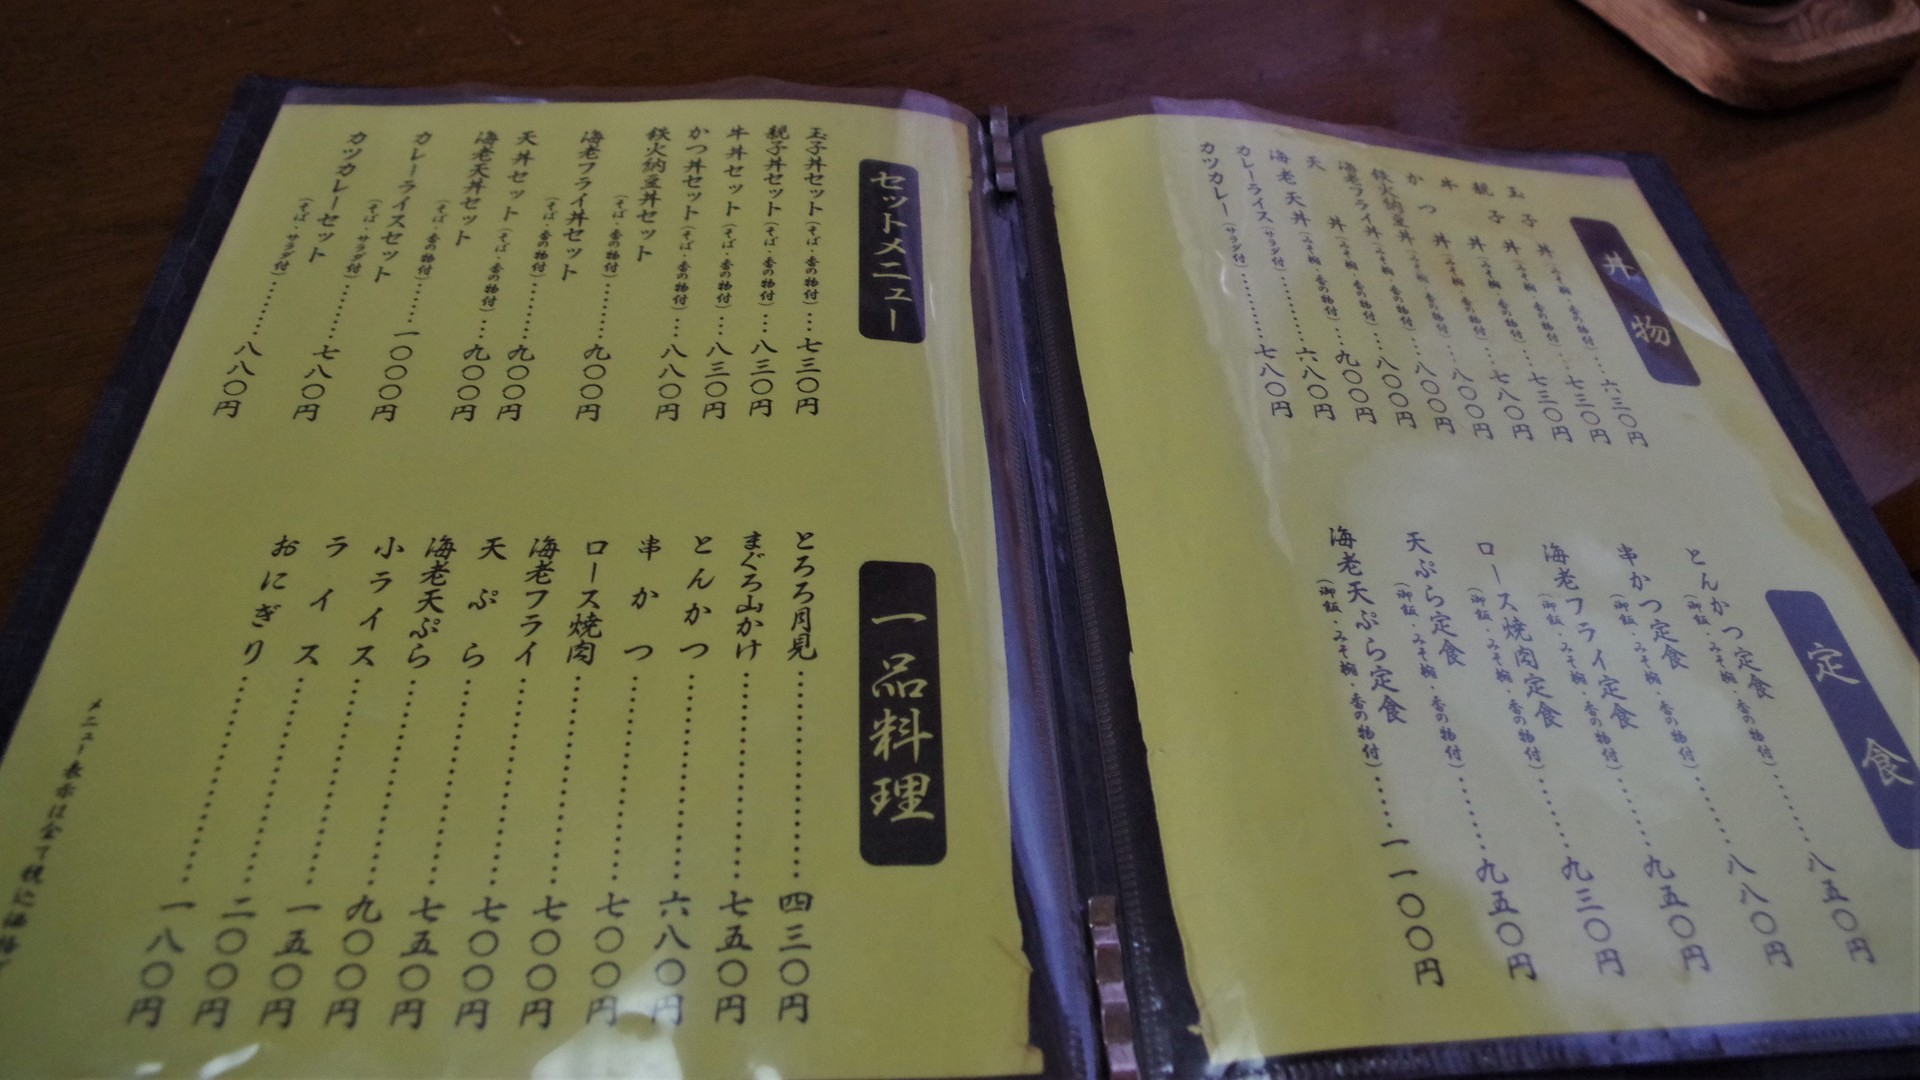 丼物
玉子丼(みそ椀・香の物付)…六三〇円
親子丼(みそ椀・香の物付)…七三〇円
牛丼(みそ椀・香の物付)…七三〇円
かつ丼(みそ椀・香の物付)…七八〇円
鉄火納豆丼(みそ椀・香の物付)…八〇〇円
海老フライ丼(みそ椀・香の物付)…八〇〇円
天丼(みそ椀・香の物付)…八〇〇円
海老天丼(みそ椀・香の物付)…九〇〇円
カレーライス(サラダ付)…六八〇円
カツカレー(サラダ付)…七八〇円
定食
とんかつ定食(御飯・みそ椀・香の物付)…八五〇円
串かつ定食(御飯・みそ椀・香の物付)…八八〇円
海老フライ定食(御飯・みそ椀・香の物付)…九五〇円
ロース焼肉定食(御飯・みそ椀・香の物付)…九三〇円
天ぷら定食(御飯・みそ椀・香の物付)…九五〇円
海老天ぷら定食(御飯・みそ椀・香の物付)…一一〇〇円
セットメニュー
玉子丼セット(そば・香の物付)…七三〇円
親子丼セット(そば・香の物付)…八三〇円
牛丼セット(そば・香の物付)…八三〇円
かつ丼セット(そば・香の物付)…八八〇円
鉄火納豆丼セット(そば・香の物付)…九〇〇円
海老フライ丼セット(そば・香の物付)…九〇〇円
天丼セット(そば・香の物付)…九〇〇円
海老天丼セット(そば・香の物付)…一〇〇〇円
カレーライスセット(そば・サラダ付)…七八〇円
カツカレーセット(そば・サラダ付)…八八〇円
一品料理
とろろ月見…四三〇円
まぐろ山かけ…七五〇円
とんかつ…六八〇円
串かつ…七〇〇円
ロース焼肉…七〇〇円
海老フライ…七〇〇円
天ぷら…七五〇円
海老天ぷら…九〇〇円
小ライス…一五〇円
ライス…二〇〇円
おにぎり…一八〇円
メニュー表示は全て税込